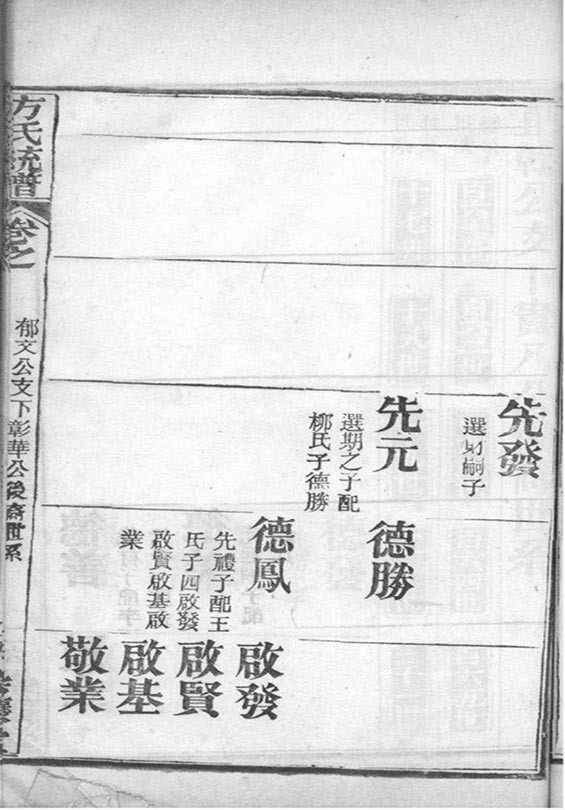 先發
選財嗣子
先元
選期之子配
柳氏子德勝
德勝
德鳳
先禮子配王
氏子四啟發
啟賢啟基啟
業
啟發
啟賢
啟基
敬業
方氏統譜
卷之
郁文公支下彰華公後裔世系